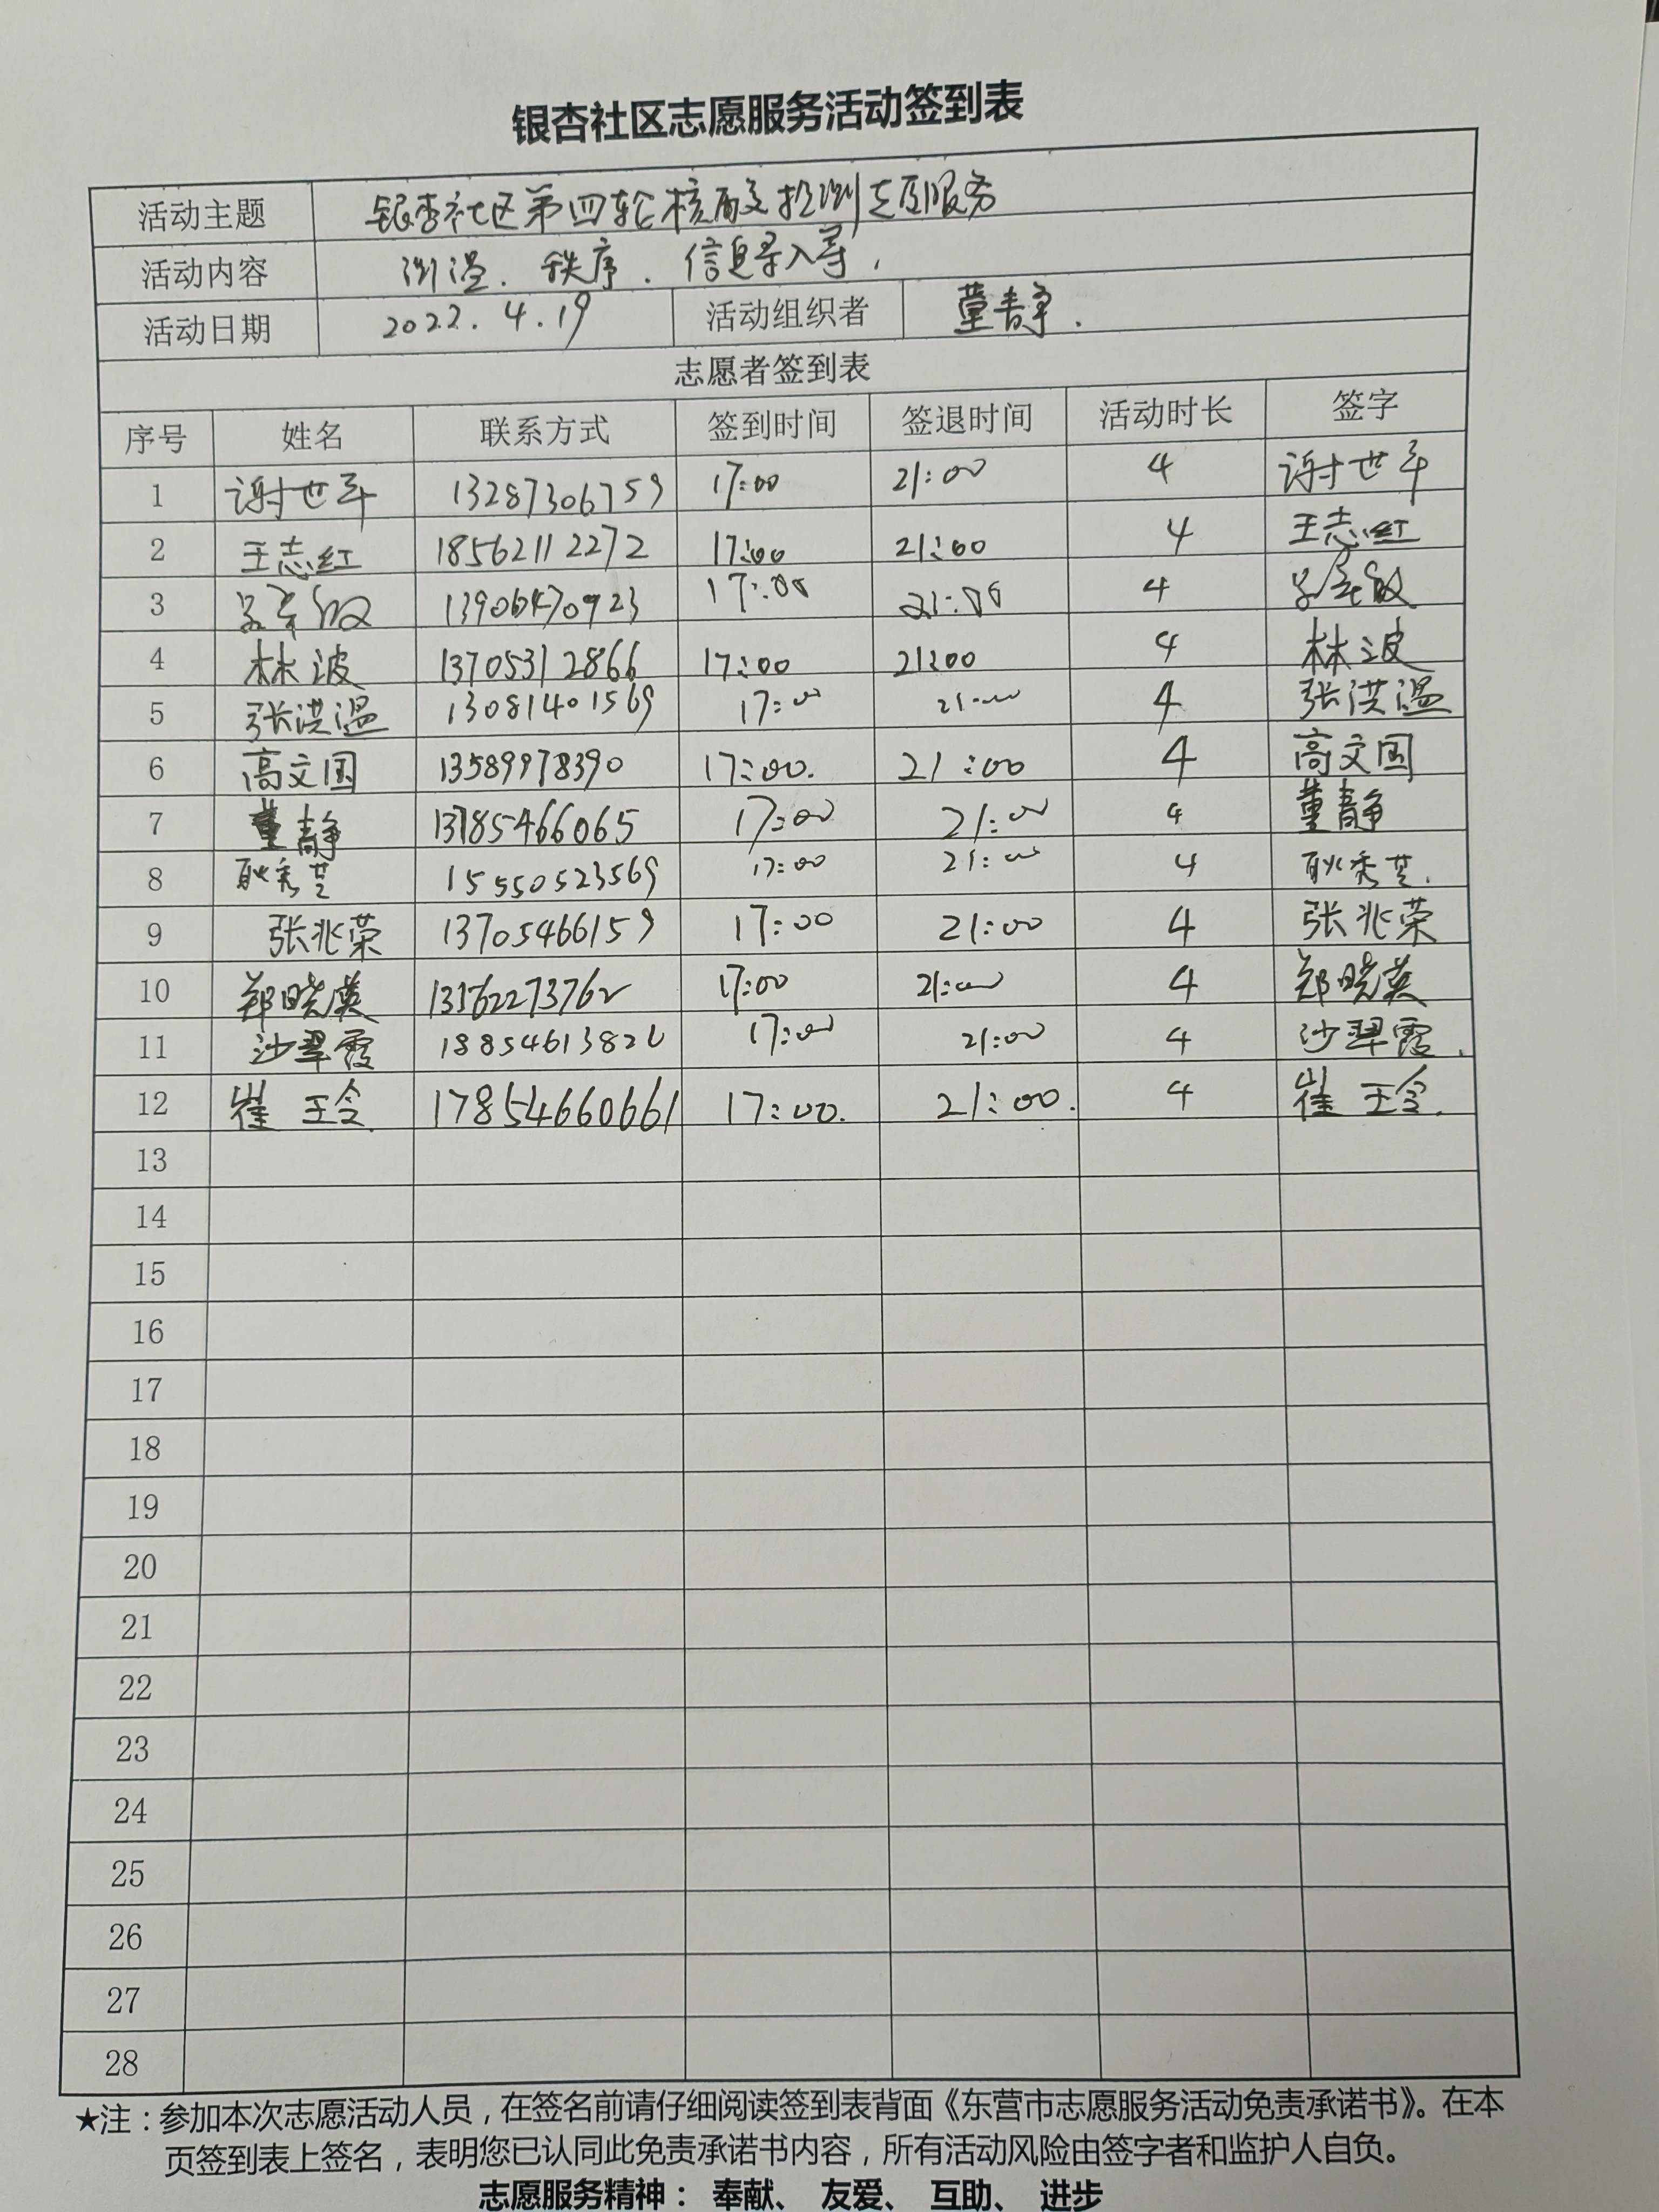 银杏社区志愿服务活动签到表
活动主题 银杏社区第四轮核酸检测志愿服务
活动内容 测温、秩序、信息录入等.
活动日期 2022.4.19 活动组织者 董静.
志愿者签到表
序号 姓名 联系方式 签到时间 签退时间 活动时长 签字
1 谢世平 13287306759 17:00 21:00 4 谢世平
2 王志红 18562112272 17:00 21:00 4 王志红
3 13906470923 17:00 21:00 4
4 林波 13705312866 17:00 21:00 4 林波
5 张洪温 13081401569 17:00 21:00 4 张洪温
6 高文国 13589978390 17:00. 21:00 4 高文国
7 董静 13785466065 17:00 21:00 4 董静
8 耿秀芝 15550523569 17:00 21:00 4 耿秀芝.
9 张兆荣 13705466159 17:00 21:00 4 张兆荣
10 郑晓英 17:00 21:00 4 郑晓英
11 沙翠霞 18854613826 17:00 21:00 4 沙翠霞.
12 崔玲. 17854660661 17:00. 21:00. 4 崔玲.
13
14
15
16
17
18
19
20
21
22
23
24
25
26
27
28
★注：参加本次志愿活动人员，在签名前请仔细阅读签到表背面《东营市志愿服务活动免责承诺书》。在本
页签到表上签名，表明您已认同此免责承诺书内容，所有活动风险由签字者和监护人自负。
志愿服务精神： 奉献、 友爱、 互助、 进步